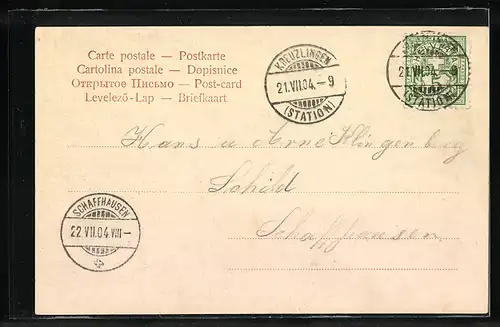 Carte postale — Postkarte
Cartolina postale — Dopisnice
Открытое Письмо — Post-card
Levelező-Lap — Briefkaart
KREUZLINGEN
21.VII.04.-9
(STATION)
KREUZLINGEN
21.VII.04.-9
(STATION)
Hans u Arne Klingenberg
Schild
Schaffhausen
SCHAFFHAUSEN
22.VII.04.VIII-